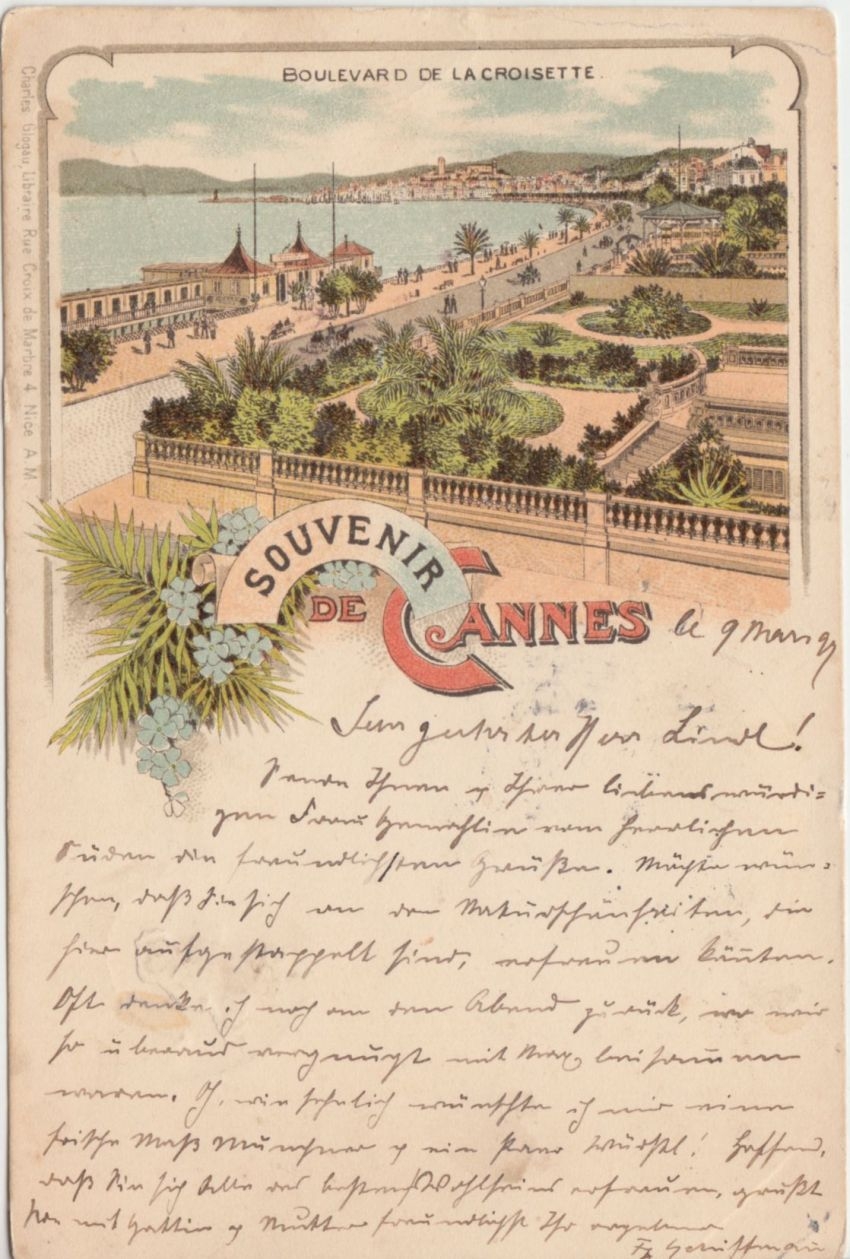 BOULEVARD DE LA CROISETTE.
Charles Glogau, Libraire Rue Croix de Marbre 4 Nice A.M
SOUVENIR
DE CANNES
le 9 Mars 97
Sehr geehrter Herr Lindl!
Sende Ihnen & Ihrer liebenswürdi=
gen Frau Gemahlin vom herrlichen
Süden die freundlichsten Grüße. Möchte wün=
schen, daß Sie sich an den Naturschönheiten, die
hier aufgestappelt sind, erfreuen könnten.
Oft denke ich noch an den Abend zurück, wo wir
so überaus vergnügt mit Max beisammen
waren. O, wie sehnlich wünschte ich mir eine
frische Maß Münchner & ein Paar Würstl! Hoffend,
daß Sie sich Alle des besten Wohlseins erfreuen, grüßt
Sie mit Gattin & Mutter freundlichst Ihr ergebener